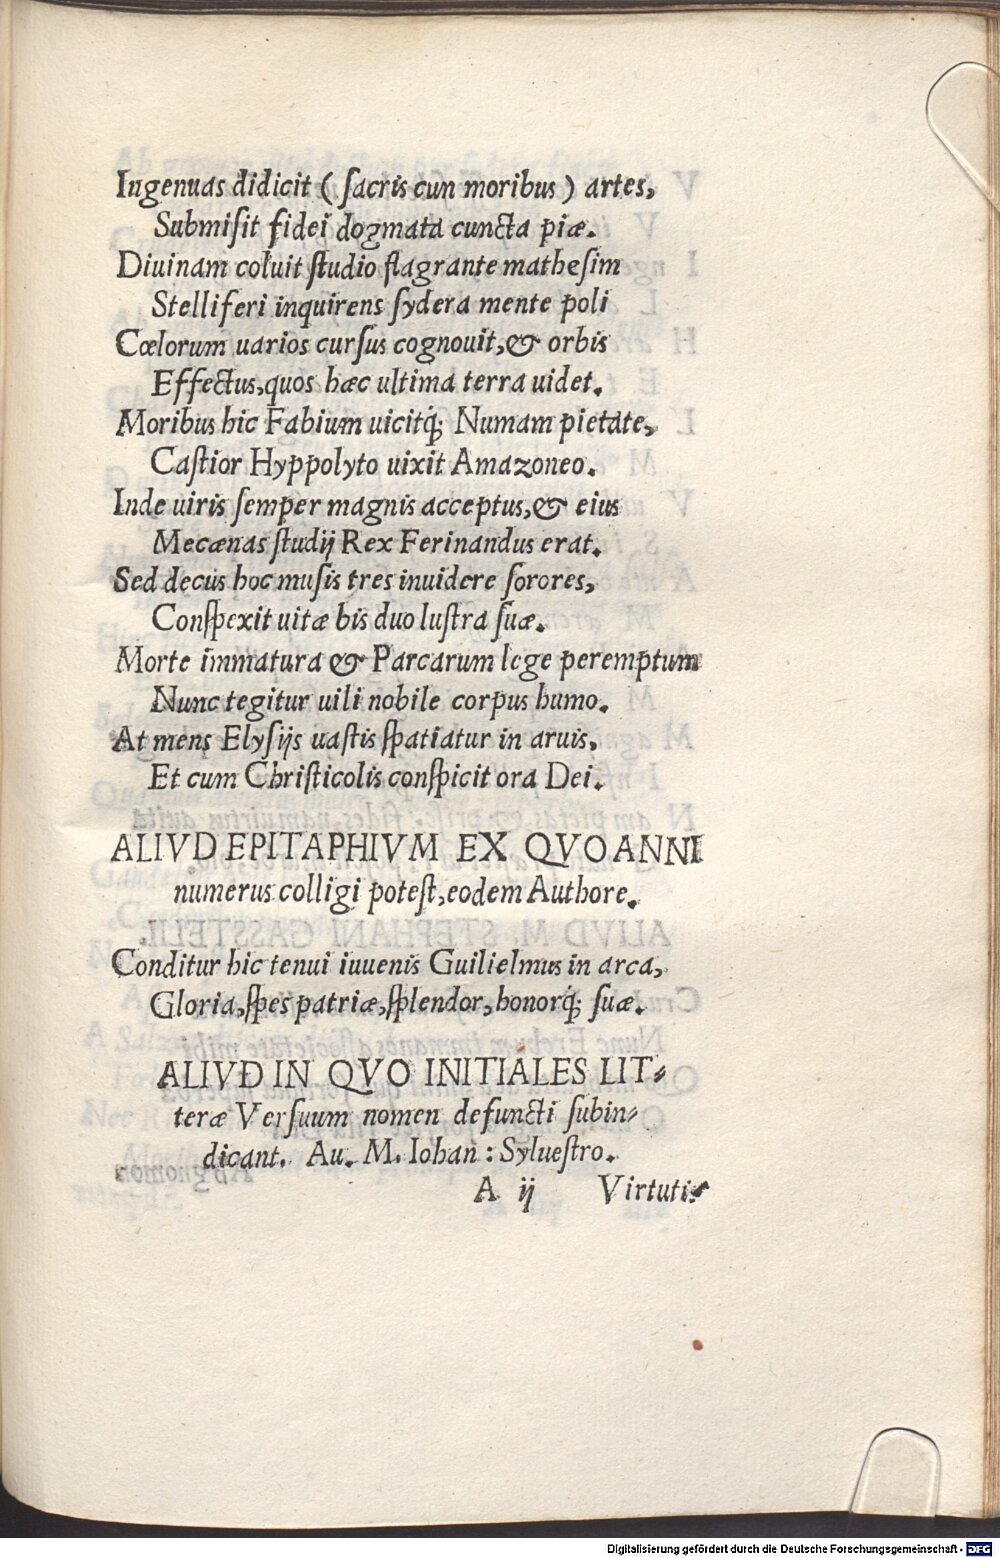 Ingenuas didicit ( sacris cun moribus ) artes,
Submisit fidei dogmata cuncta piæ.
Diuinam coluit studio flagrante mathesim
Stelliferi inquirens sydera mente poli
Cœlorum uarios cursus cognouit, & orbis
Effectus, quos hæc ultima terra uidet.
Moribus hic Fabium uicitq́; Numam pietate,
Castior Hyppolyto uixit Amazoneo.
Inde uiris semper magnis acceptus, & eius
Mecænas studij Rex Ferinandus erat.
Sed decus hoc musis tres inuidere sorores,
Conspexit uitæ bis duo lustra suæ.
Morte immatura & Parcarum lege peremptum
Nunc tegitur uili nobile corpus humo.
At mens Elysijs uastis spatiatur in aruis,
Et cum Christicolis conspicit ora Dei.
ALIVD EPITAPHIVM EX QVO ANNI
numerus colligi potest, eodem Authore.
Conditur hic tenui iuuenis Guilielmus in arca,
Gloria, spes patriæ, splendor, honorq́; suæ.
ALIVD IN QVO INITIALES LIT-
teræ Versuum nomen defuncti subin-
dicant. Au. M. Iohan : Syluestro.
A ij Virtutis
Digitalisierung gefördert durch die Deutsche Forschungsgemeinschaft - DFG